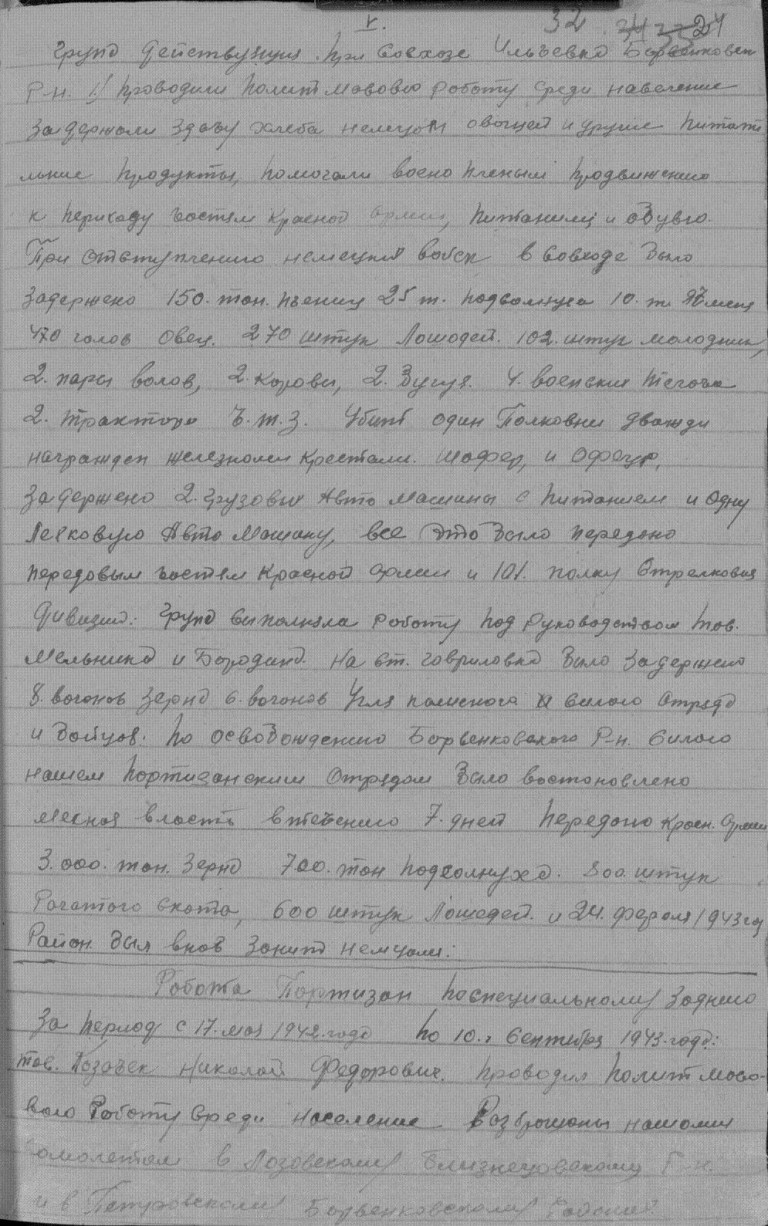 V.
32 24
Група действующия при Совхозе Ильзевка Барвенковск
Р-н. 1/ проводили политмасовою работу среди население
задержали здачу хлеба немцам овощей и другие питат
льние продукты, помогали воено пленым продвижению
к переходу частям красной армии, питанием и обувю.
При отступлению немецких войск в совхозе было
задержено 150. тон. пшениц 25 т. подсолнуха 10. т. ячмень
470 голов овец. 270 штук лошадей. 102. штук молодник,
2. пары волов, 2. коровы, 2. 4. военских тягоча
2. трактори Ч.т.З. убито один Полковник дважди
награжден железном крестами. шофер, и офецер,
задержено 2. грузовых Авто машины с питанием и одну
легковую Авто машину, все это было передано
передовым частям красной армии и 101. полку стрелковия
дивизии: Група выполняла работу под руководством тов.
Мельника и Бородина. На ст. Гавриловка было задержено
8. вагонов зерна 6. вагонов угля силого отряда
и бойцов. по освобождению Барвенковского Р-н. силою
нашем партизанским отрядом было востановлено
месная власть втечению 7. дней передано красн. армии
3.000. тон. зерна 700. тон подсолнуха. 800. штук
рогатого скота, 600 штук лошадей. и 24. февраля 1943 год
Район был внов занит немцами:
Робота Партизан поспециальному заднию
за период с 17. мая 1942. года по 10. сентября 1943. года:
тов. Козачек Николай Федорович. проводил политмасо-
вою работу среди население Разброшены нашими
самолетам в Лозовскому Близнецовскому Р-н.
и в Петровском Барвенковском